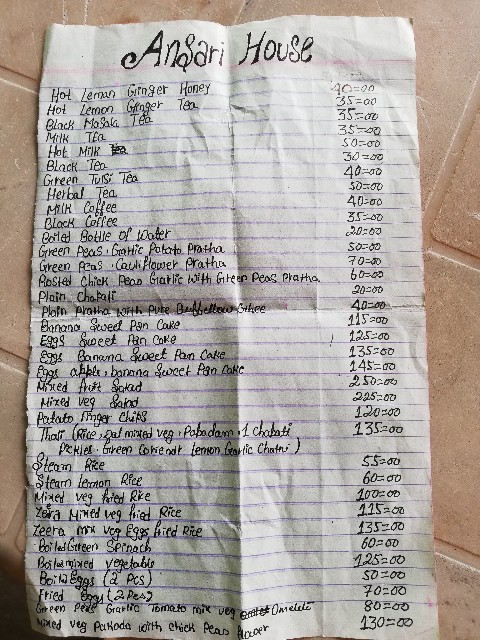 Ansari House
Hot Leman Ginger Honey 40=00
Hot Lemon Ginger Tea 35=00
Black Masala Tea 35=00
Milk Tea 35=00
Hot Milk 50=00
Black Tea 30=00
Green Tulsi Tea 40=00
Herbal Tea 50=00
Milk Coffee 40=00
Black Coffee 35=00
Boiled Bottle of Water 20=00
Green Peas, Garlic Potato Pratha 50=00
Green Peas, Cauliflower Pratha 70=00
Rosted Chick Peas Garlic with Green Peas Pratha 60=00
Plain Chapati 20=00
Plain Pratha with Pure Buffellow Ghee 40=00
Banana Sweet Pan Cake 115=00
Eggs Sweet Pan Cake 125=00
Eggs Banana Sweet Pan Cake 135=00
Eggs apple, banana Sweet Pan Cake 145=00
Mixed fruit Salad 250=00
Mixed veg Salad 225=00
Patato finger Chips 120=00
Thali (Rice, Dal mixed veg, Papadam, 1 Chapati 135=00
Pickles, Green Lemon Garlic Chatni)
Steam Rice 55=00
Steam Lemon Rice 60=00
Mixed veg fried Rice 100=00
Zeera Mixed veg fried Rice 115=00
Zeera mix veg Eggs fried Rice 135=00
Boiled Green Spinach 60=00
Boiled mixed vegetable 125=00
Boiled Eggs (2 Pcs) 50=00
Fried Eggs (2 Pcs) 70=00
Green Peas Garlic Tomato mix veg Omelete 80=00
Mixed veg Pakoda with Chick Peas flower 130=00